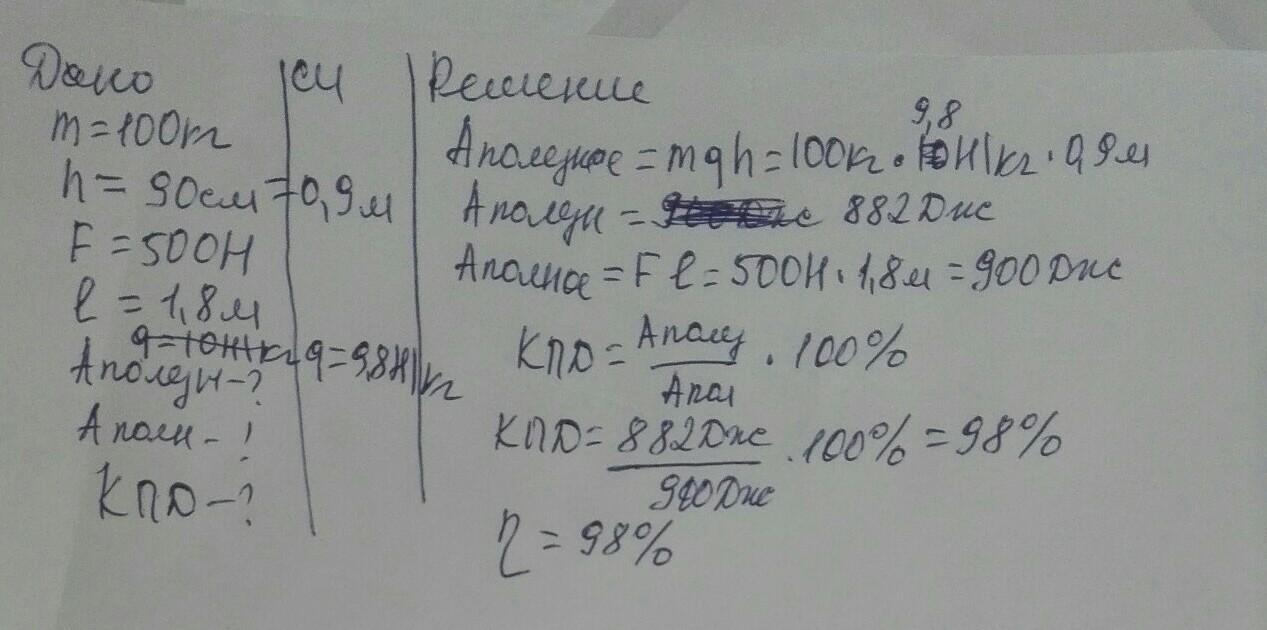 Дано
m=100кг
h=90см=0,9м
F=500Н
l=1,8м
g=10Н/кг g=9,8Н/кг
Аполезн-?
Аполн-?
КПД-?
СИ
Решение
Аполезное=mgh=100кг·9,8Н/кг·0,9м
Аполезн= 882Дж
Аполное=Fl=500Н·1,8м=900Дж
КПД=Аполез/Апол·100%
КПД=882Дж/900Дж·100%=98%
η=98%